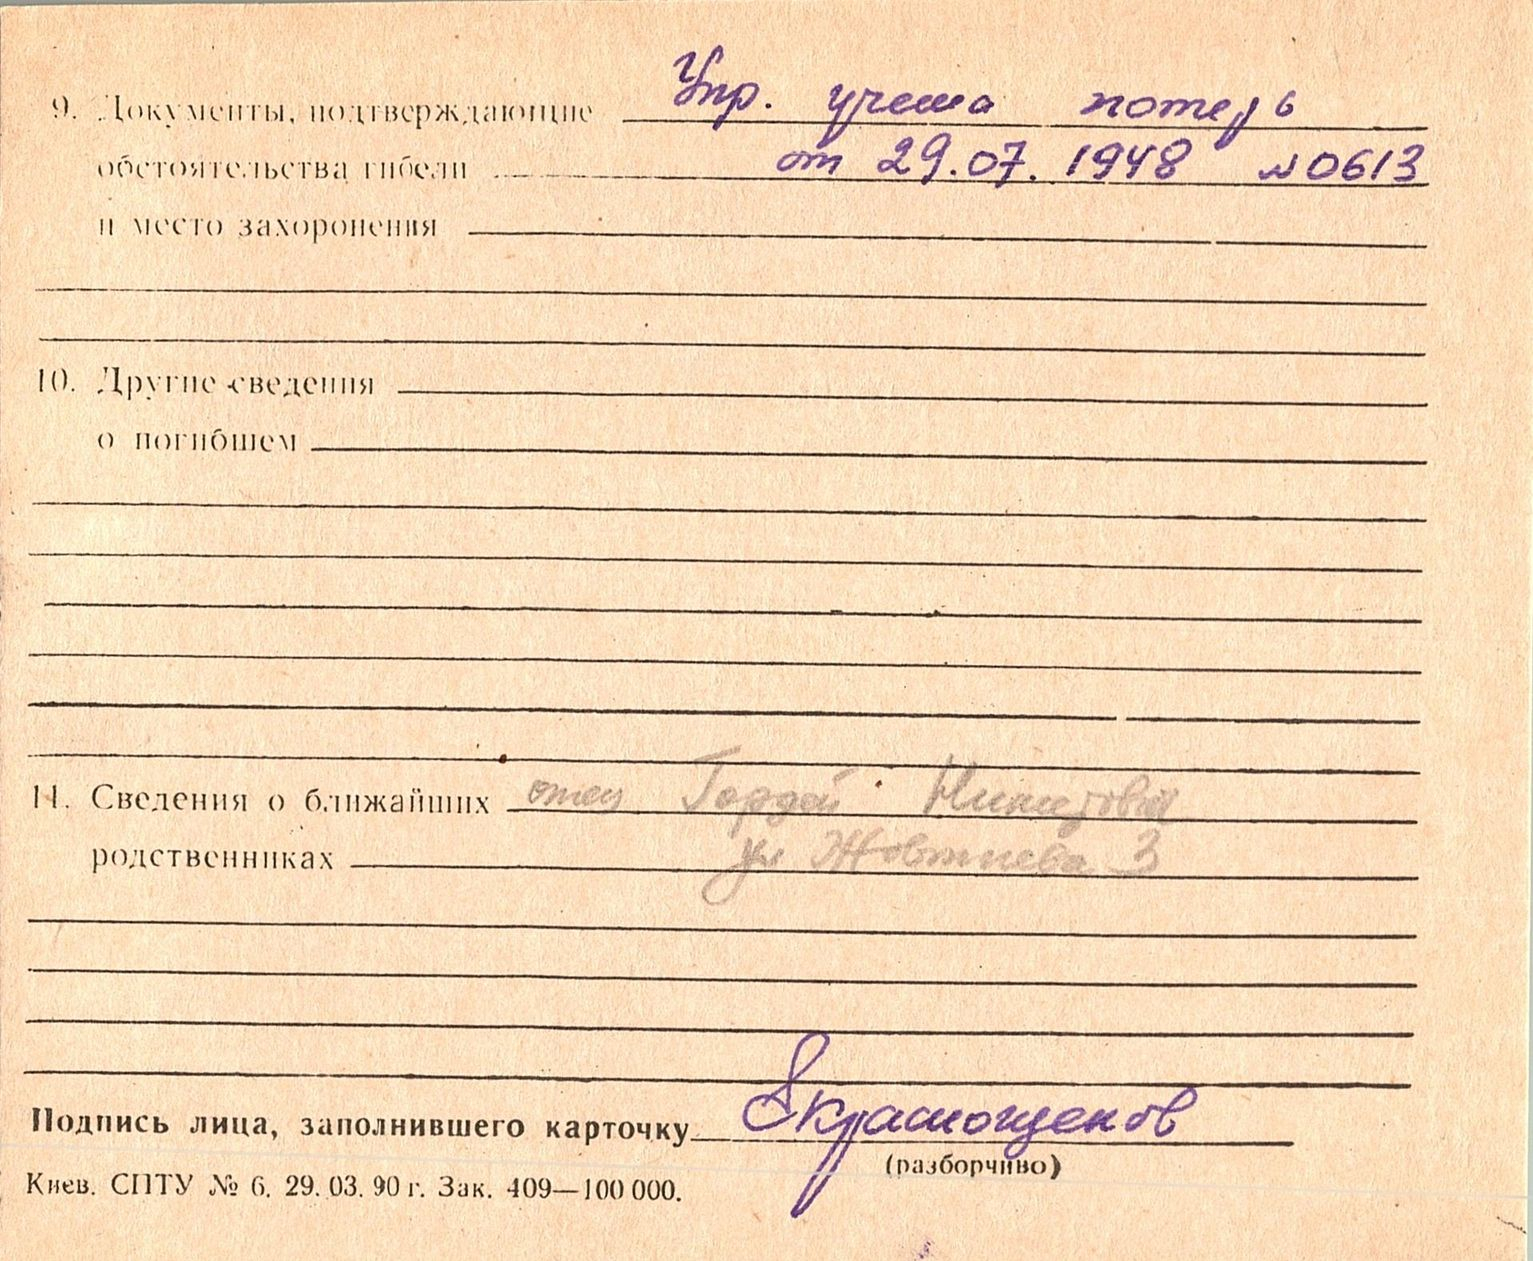 9. Документы, подтверждающие Упр. учета потерь
обстоятельства гибели от 29.07.1948 №0613
и место захоронения
10. Другие сведения
о погибшем
11. Сведения о ближайших отец Гордей Никитович
родственниках ул Жовтнева 3
Подпись лица, заполнившего карточку Якрасношенов
(разборчиво)
Киев. СПТУ № 6. 29. 03. 90 г. Зак. 409—100 000.